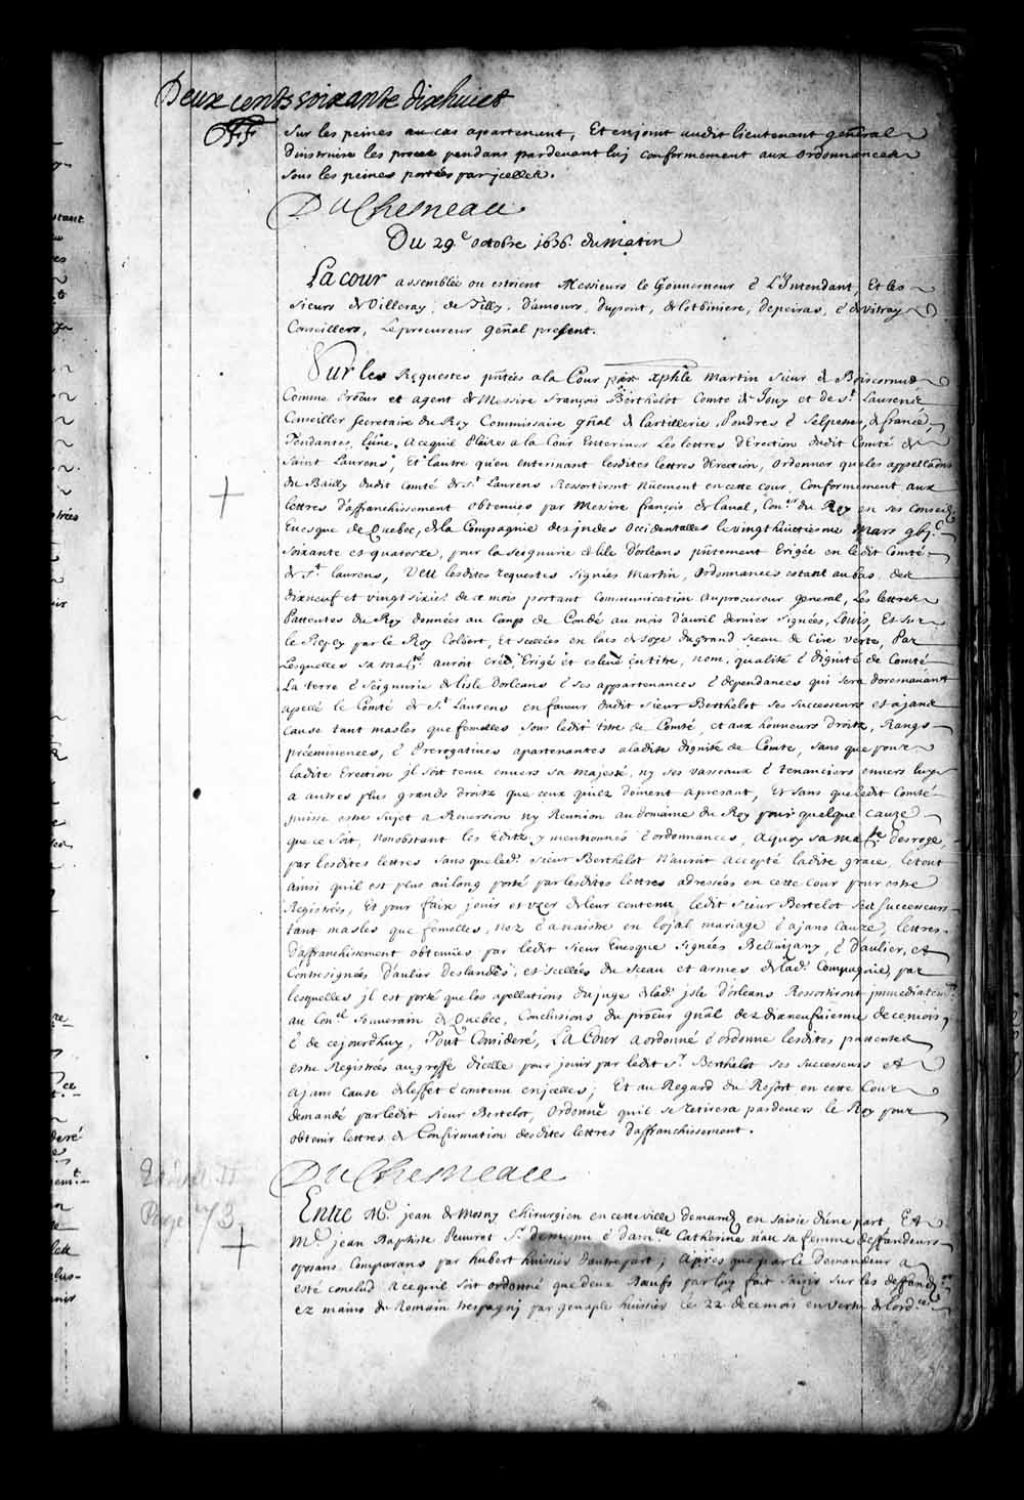 Deux cents soixante dixhuict
sur les peines au cas apartenant, Et enjoint audit lieutenant gñeral
dinstruire les proces pendans pardevant luy conformement aux ordonnances
sous les peines portées par jcelles.
DuChesneau
Du 29e octobre 1676 du matin
La cour assemblée ou estoient Messieurs le Gouverneur & L'Intendant, Et les
sieurs de Villeray, de Tilly, damours, dupont, de lotbiniere, depeiras, & de vitray
Conseillers, Le procureur gñal present.
Sur les Requestes pñtées a la Cour par xphle Martin sieur de Boiscornud
Comme proĉur et agent de Messire françois Berthelot Comte de Jouy et de St Laurens
Conseiller secretaire du Roy Commissaire gñal de Lartillerie, Poudres & selpestres, de france,
Tendantes, Lune, Acequil Plaise a la Cour Enteriner Les lettres dErection dudit Comté de
Saint Laurens, Et Lautre qu'en enterinant lesdites lettres dErection, ordonner que les appellãons
du Bailly dudit comté de St Laurens Ressortiront nüement en cette cour, Conformement aux
lettres d'affranchissement obtenües par Messire françois de laval, Coner du Roy en ses Conseils
Evesque de Quebec, de la Compagnie des jndes Occidentalles le vingt huictiesme Mars gbjc
soixante et quatorze, pour la seigneurie de lile dorleans pñtement Erigée en ledit Comté
de St laurens, Veu lesdites requestes signées Martin, ordonnances estant au bas, des
dixneuf et vingt sixie de ce mois portant Communication au procureur general, Les lettres
Pattentes du Roy données au Camp de Condé au mois d'avril dernier signées, Louis, Et sur
le Reply par le Roy Colbert, Et scellées en lacs de soye du grand sceau de Cire verte, Par
Lesquelles sa maté auroit créé, Erigé et eslevé en titre, nom, qualité & dignité de Comté
La terre & seigneurie de lisle dorleans & ses appartenances & dependances qui sera doresnavant
apellé le Comté de St Laurens en faveur dudit sieur Berthelot ses successeurs et ajans
cause tant masles que femelles sous ledit titre de Comté, et aux honneurs droits, Rangs
prééminences, & Prerogatives apartenantes a ladite dignité de Comte, sans que pour
ladite Erection jl soit tenu envers sa majesté, ny ses vassaux & tenanciers envers luy
a autres plus grands droits que ceux quils doivent apresant, Et sans que ledit Comté
puisse estre sujet a Reversion ny Reunion au domaine du Roy pour quelque cauze
que ce soit, nonobstant les Edits y mentionnés & ordonnances, aquoy sa mate desroge
par lesdites lettres sans que ledt sieur Berthelot n'auroit accepté ladite grace, le tout
ainsi quil est plus aulong porté par lesdites lettres adressées en cette cour pour estre
Registrées, Et pour faire jouir et uzer de leur contenu ledit sieur Bertelot ses successeurs
tant masles que femelles, nez & a naistre en loyal mariage & ajans cauze, lettres
d'affranchissement obtenües par ledit sieur Evesque signées Bellinzany, & Daulier, et
Contresignées d'aulier deslandes, et scellées du sceau et armes de ladt Compagnie, par
lesquelles jl est porté que les apellations du juge de ladt jsle dorleans Ressortiront jmmediatemt
au Conel souverain de Quebec, Conclusions du procur gñal des dixneufuiesme de ce mois,
& de cejourdhuy, Tout Consideré, La Cour a ordonné & ordonne lesdites pattentes
estre Registrées au greffe dicelle pour jouir par ledit Sr Berthelot ses successeurs et
ajans cause de leffet & contenu en jcelles; Et au Regard du Resort en cette Cour
demandé par ledit sieur Bertelot, Ordonne quil se retirera pardevers le Roy pour
obtenir lettres de Confirmation desdites lettres daffranchissement.
DuChesneau
Page 73
Entre Me jean de Mosny chirurgien en cette ville demandr en saisie dune part, Et
Me jean Baptiste Peuvret Sr demenu & damlle Catherine nau sa femme deffendeurs
oposans Comparans par hubert huissier dautrepart; Apres que par le demandeur a
esté conclud acequil soit ordonné que deux Bœufs par luy fait saisir sur les deffendrs
ez mains de Romain trespagny par genaple huissier le 22 de ce mois en vertu de lordce